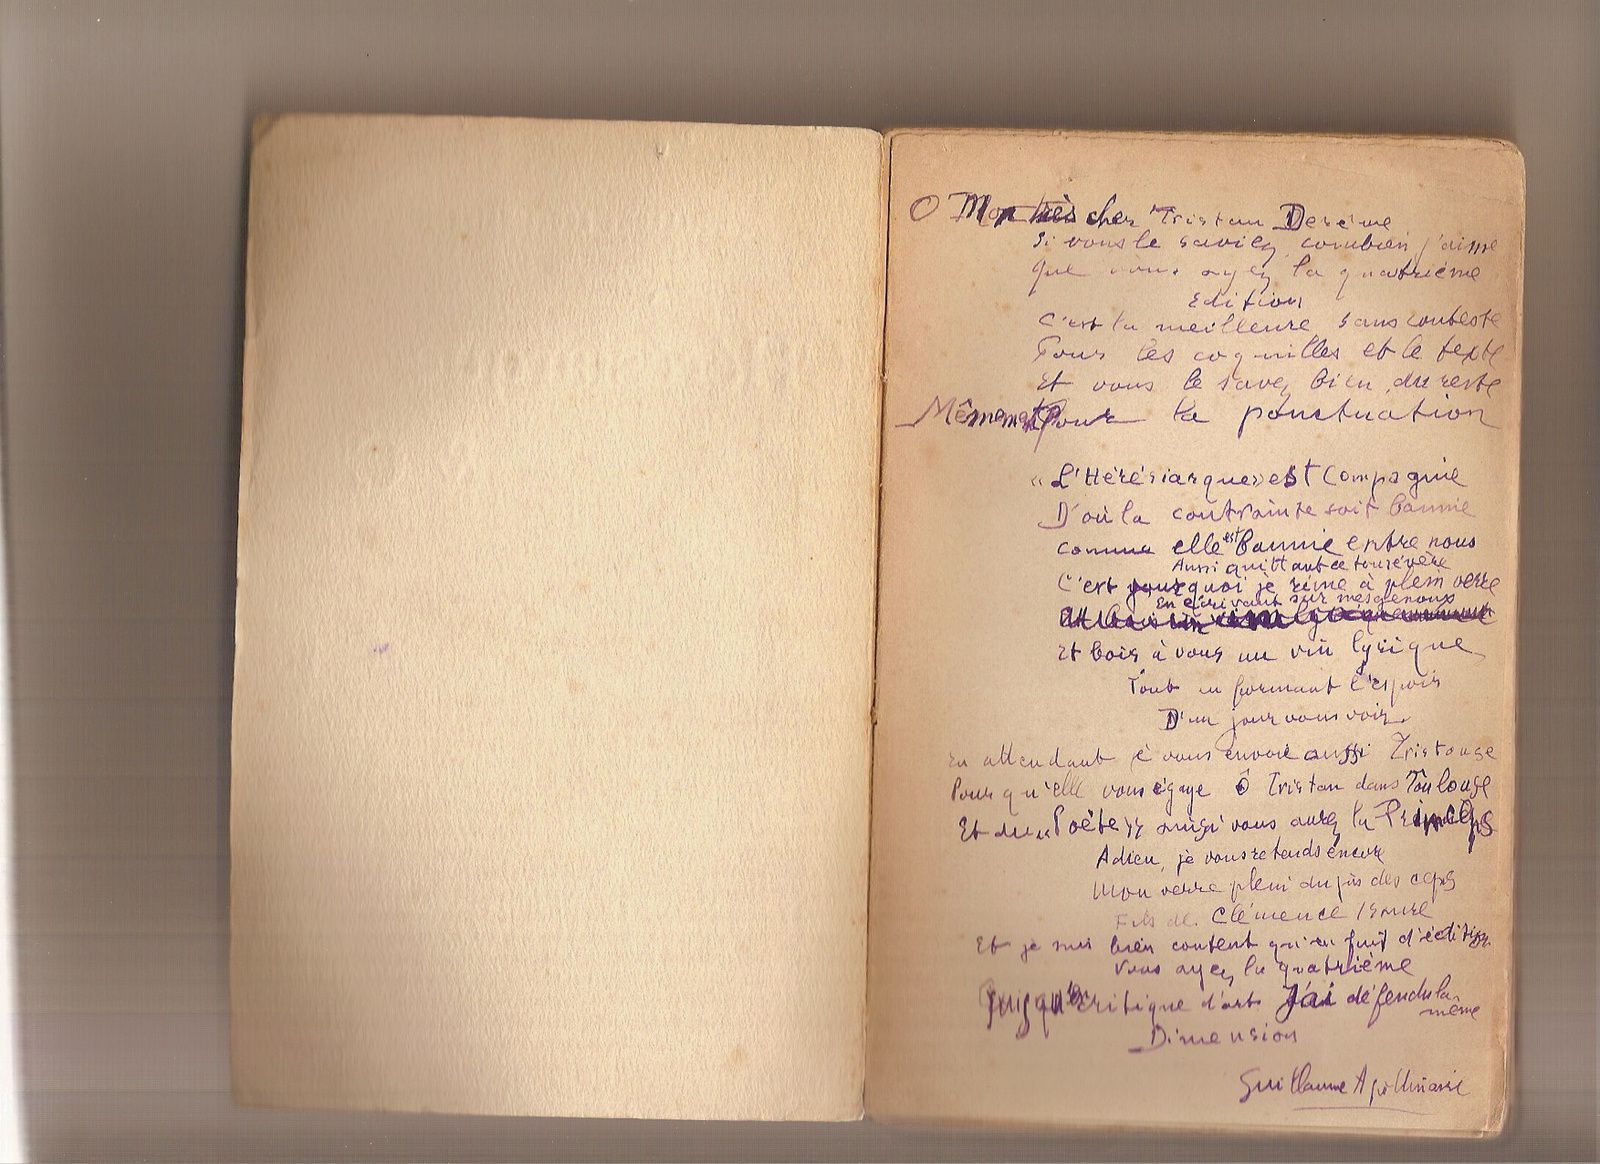 O Mon très cher Tristan Derème
Si vous le saviez combien j'aime
Que vous ayez la quatrième
Edition
C'est la meilleure sans conteste
Pour les coquilles et le texte
Et vous le savez bien du reste
Mêmement Pour la ponctuation
« L'Hérésiarque » est Compagnie
D'où la contrainte soit bannie
comme elle est bannie entre nous
Aussi quittant ce ton sévère
C'est pourquoi je rime à plein verre
En écrivant sur mes genoux
Et bois à vous un vin lyrique
Tout en formant l'espoir
D'un jour vous voir.
En attendant je vous envoie aussi Tristouse
Pour qu'elle vous égaye ô Tristan dans Toulouse
Et du « Poète » ainsi vous aurez la Princeps
Adieu, je vous retends encore
Mon verre plein du jus des ceps
Fils de Clémence Isaure
Et je suis bien content qu'en fait d'édition
Vous ayez la quatrième
Puisqu'en critique d'art J'ai défendu la
même
Dimension
Guillaume Apollinaire